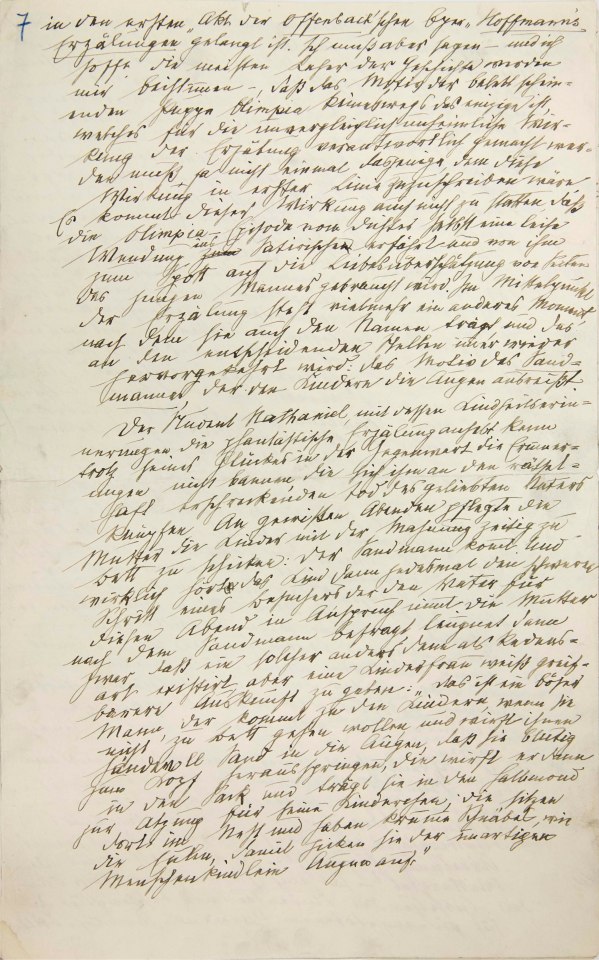 7 in den ersten Akt der Offenbach'schen Oper „Hoffmanns
Erzälungen" gelangt ist. Ich muß aber sagen – und ich
hoffe die meisten Leser der Geschichte werden
mir beistimen –, daß das Motiv der belebt schein-
enden Puppe Olimpia keineswegs das einzige ist
welches für die unvergleichlich unheimliche Wir-
kung der Erzälung verantwortlich gemacht wer-
den muß, ja nicht einmal dasjenige dem diese
Wirkung in erster Linie zuzuschreiben wäre
Es kommt dieser Wirkung auch nicht zu statten daß
die Olimpia-Episode vom Dichter selbst eine leise
Wendung ins Satirische erfährt und von ihm
zum Spott auf die Liebesüberschätzung von Seiten
des jungen Mannes gebraucht wird. Im Mittelpunkt
der Erzälung steht vielmehr ein anderes Moment,
nach dem sie auch den Namen trägt und das
an den entscheidenden Stellen imer wieder
hervorgekehrt wird: das Motiv des Sand-
mannes der den Kindern die Augen ausreißt.
Der Student Nathaniel, mit dessen Kindheitserin-
nerungen die phantastische Erzälung anhebt kann
trotz seines Glückes in der Gegenwart die Erinner-
ungen nicht bannen die sich ihm an den rätsel-
haft erschreckenden Tod des geliebten Vaters
knüpfen. An gewissen Abenden pflegte die
Mutter die Kinder mit der Mahnung zeitig zu
Bett zu schicken: Der Sandmann komt. Und
wirklich hört das Kind dann jedesmal den schweren
Schritt eines Besuchers der den Vater für
diesen Abend in Anspruch nimt. Die Mutter
nach dem Sandmann befragt leugnet dann
zwar daß ein solcher anders denn als Redens-
art existirt aber eine Kinderfrau weiß greif-
barere Auskunft zu geben: „Das ist ein böser
Mann, der kommt zu den Kindern, wenn sie
nicht zu Bett gehen wollen und wirft ihnen
Händevoll Sand in die Augen, daß sie blutig
zum Kopf herausspringen, die wirft er dann
in den Sack und trägt sie in den Halbmond
zur Atzung für seine Kinderchen, die sitzen
dort im Nest und haben krumme Schnäbel, wie
die Eulen, damit picken sie der unartigen
Menschenkindlein Augen auf."